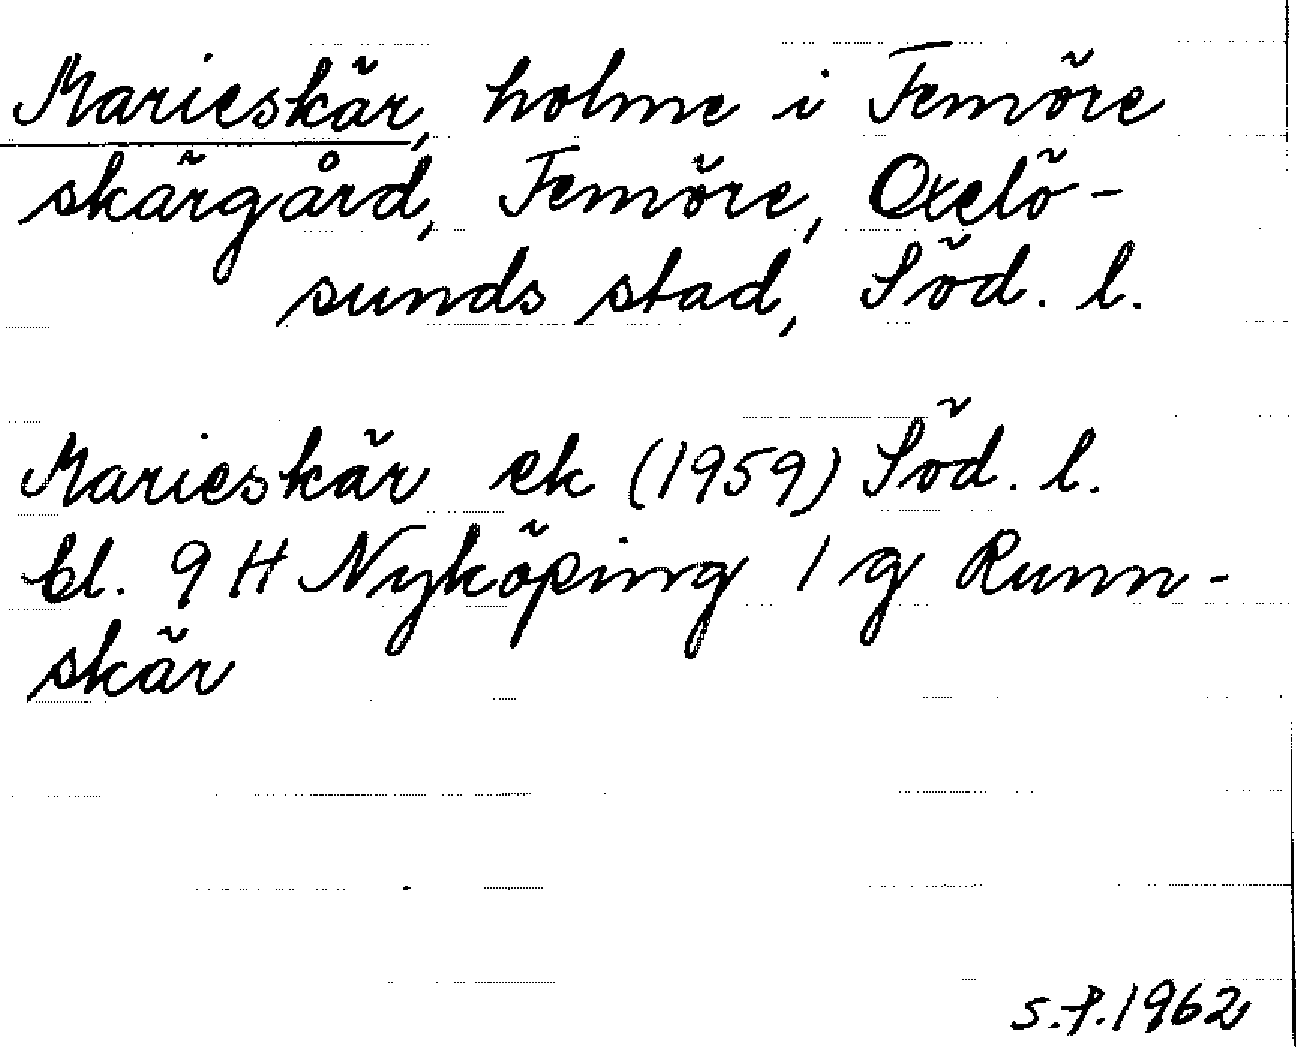 Marieskär, holme i Femöre
skärgård, Femöre, Oxelö-
sunds stad, Söd. l.
Marieskär ek (1959) Söd. l.
bl. 9 H Nyköping 1 g Runn-
skär
S.P. 1962